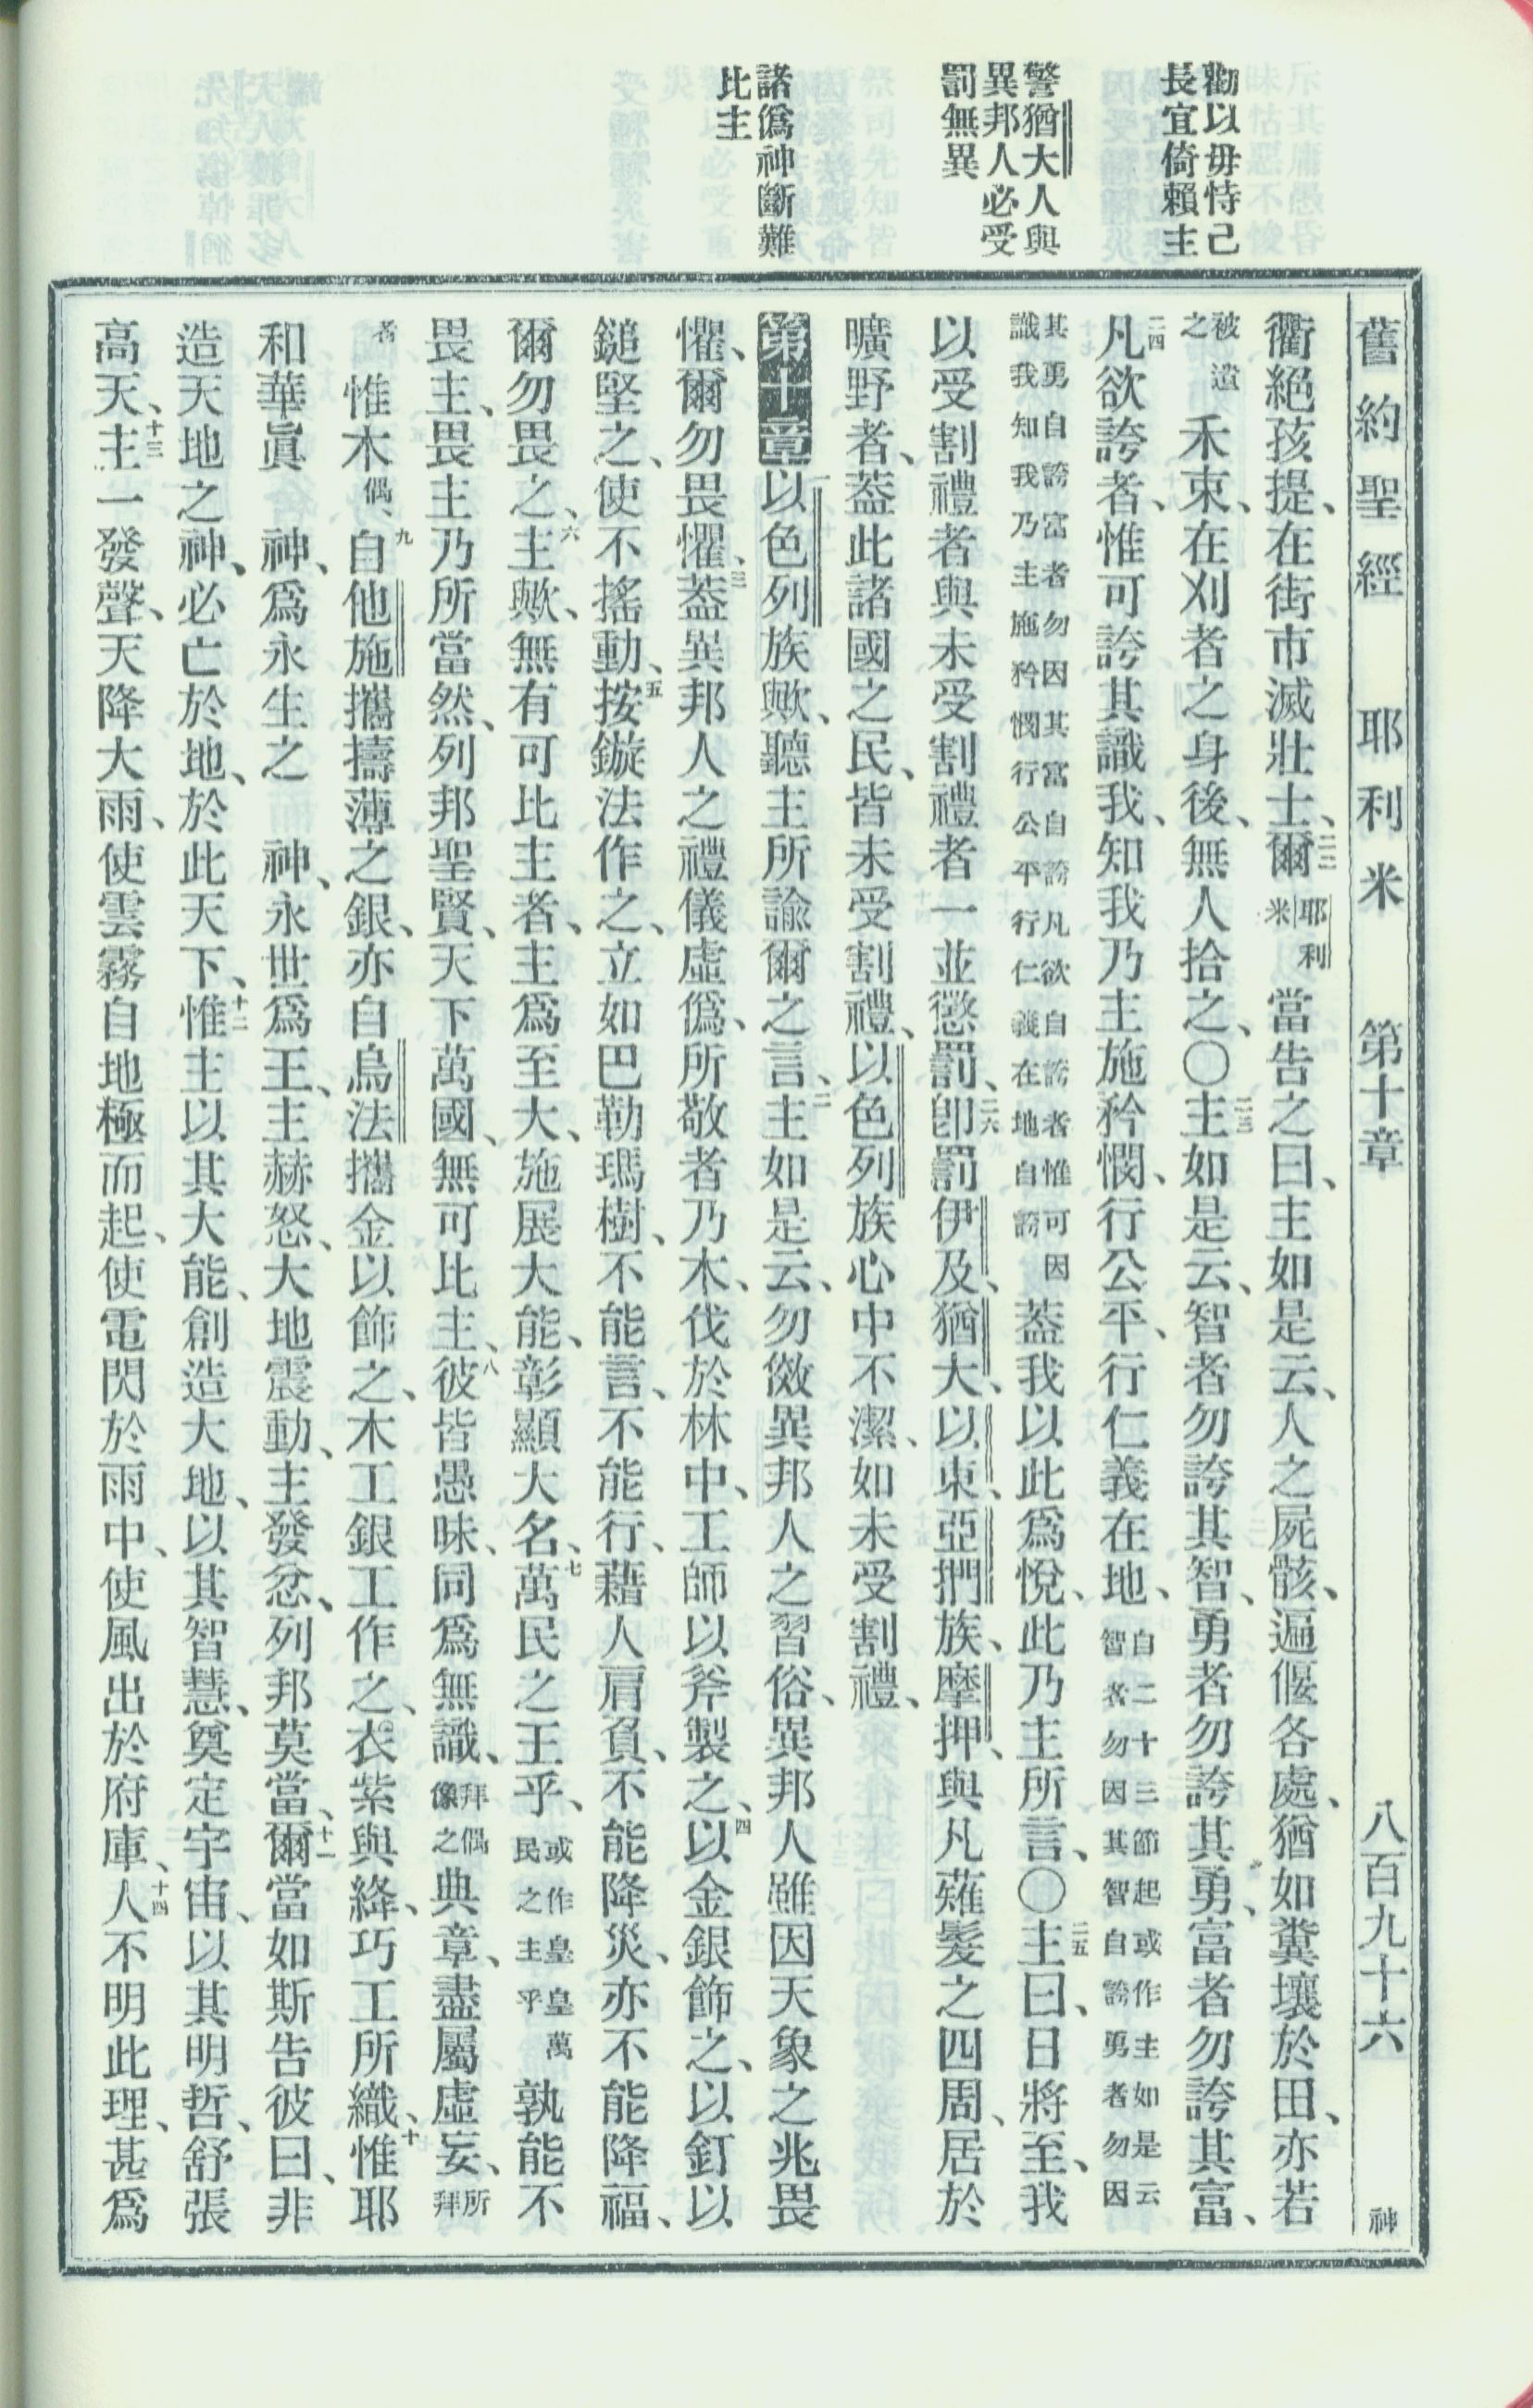 勸以毋恃己
長宜倚賴主
警猶大人與
異邦人必受
罰無異
諸僞神斷難
比主
舊約聖經 耶利米 第十章 八百九十六 神
衢絕孩提、在街市滅壯士、二二爾耶利米當告之曰、主如是云、人之屍骸、遍偃各處、猶如糞壤於田、亦若
被遺之禾束、在刈者之身後、無人拾之、〇二三主如是云、智者勿誇其智、勇者勿誇其勇、富者勿誇其富、
二四凡欲誇者、惟可誇其識我、知我乃主施矜憫、行公平、行仁義在地、自二十三節起或作主如是云智者勿因其智自誇勇者勿因
其勇自誇富者勿因其富自誇凡欲自誇者惟可因識我知我乃主施矜憫行公平行仁義在地自誇蓋我以此爲悅、此乃主所言、〇二五主曰、日將至、我
以受割禮者與未受割禮者一並懲罰、二六卽罰伊及、猶大、以東、亞捫族、摩押、與凡薙髮之四周、居於
曠野者、蓋此諸國之民、皆未受割禮、以色列族心中不潔、如未受割禮、
第十章一以色列族歟、聽主所諭爾之言、二主如是云、勿傚異邦人之習俗、異邦人雖因天象之兆畏
懼、爾勿畏懼、三蓋異邦人之禮儀虛僞、所敬者乃木、伐於林中、工師以斧製之、四以金銀飾之、以釘以
鎚堅之、使不搖動、五按鏇法作之、立如巴勒瑪樹、不能言、不能行、藉人肩負、不能降災、亦不能降福、
爾勿畏之、六主歟、無有可比主者、主爲至大、施展大能、彰顯大名、七萬民之王乎、或作皇皇萬民之主乎孰能不
畏主、畏主乃所當然、列邦聖賢、天下萬國、無可比主、八彼皆愚昧、同爲無識、拜偶像之典章、盡屬虛妄、所拜
者惟木偶、九自他施攜擣薄之銀、亦自烏法攜金以飾之、木工銀工作之、衣紫與絳、巧工所織、十惟耶
和華眞 神、爲永生之 神、永世爲王、主赫怒、大地震動、主發忿、列邦莫當、十一爾當如斯告彼曰、非
造天地之神、必亡於地、於此天下、十二惟主以其大能、創造大地、以其智慧、奠定宇宙、以其明哲、舒張
高天、十三主一發聲、天降大雨、使雲霧自地極而起、使電閃於雨中、使風出於府庫、十四人不明此理、甚爲